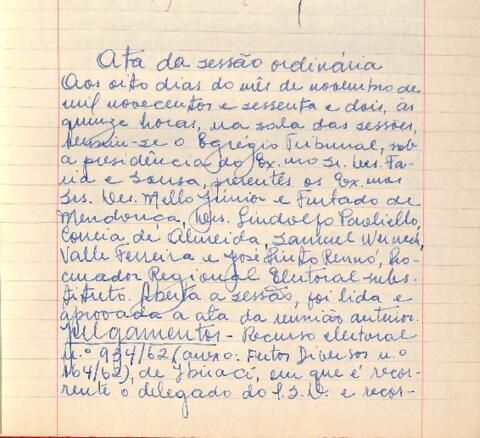 Ata da sessão ordinária
Aos oito dias do mês de novembro de
mil novecentos e sessenta e dois, às
quinze horas, na sala das sessões,
reuniu-se o Egrégio Tribunal, sob
a presidência do Ex.mo Sr. Des. Fa-
ria e Sousa, presentes os Ex.mos
Srs. Des. Mello Júnior e Furtado de
Mendonça, Drs. Lindolfo Paoliello,
Correia de Almeida, Samuel Werneck,
Valle Ferreira e José Pinto Renno, Pro-
curador Regional Eleitoral subs-
tituto. Aberta a sessão, foi lida e
aprovada a ata da reunião anterior.
Julgamentos - Recurso eleitoral
n.º 934/62 (anexo: Feitos Diversos n.º
164/62), de Ibiraci, em que é recor-
rente o delegado do P.S.D. e recor-